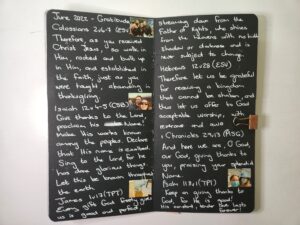 June 2022 - Gratitude
Colossians 2:6-7 (ESV)
Therefore as you received
Christ Jesus, so walk in
Him, rooted and built up
in Him, and established in
the faith, just as you
were taught, abounding in
thanksgiving.
Isaiah 12:4-5 (CSB)
Give thanks to the Lord,
proclaim his name!
Make his works known
among the peoples. Declare
that His name is exalted.
Sing to the Lord, for He
has done glorious things.
Let this be known throughout
the earth.
James 1:17 (TPT)
Every gift God freely gives
us is good and perfect,
streaming down from the
Father of lights, who shines
from the heavens with no
shadow or darkness and is
never subject to change.
Hebrews 12:28 (ESV)
Therefore let us be grateful
for receiving a kingdom
that cannot be shaken, and
thus let us offer to God
acceptable worship, with
reverence and awe
1 Chronicles 29:13 (MSG)
And here we are, O God,
our God, giving thanks to
you, praising your splendid
Name.
Psalm 118:1 (TPT)
Keep on giving thanks to
God, for He is good!
His constant, tender love lasts
forever!